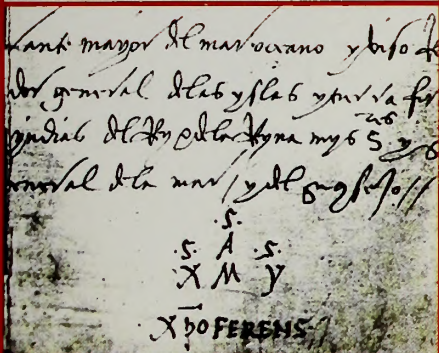 rante mayor del mar oceano y viso Re
dor general de las yslas y tierra fir
yndias del Rey e de la Reyna mys S.es y su
eneral de la mar / y del consejo //
.S.
.S. A .S.
X M Y
Xpo FERENS./